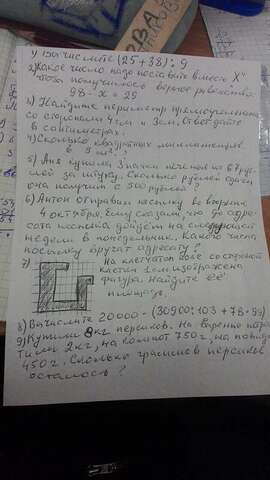 1) Вычислите (25+38):9
2) Какое число надо поставить вместо X"
чтоб получилось верное равенство:
98-X=29
3) Найдите периметр прямоугольника
со сторонами 4см и 3см. Ответ дайте
в сантиметрах.
4) Сколько квадратных миллиметров
в 5
5) Аня купила 3 пачки печенья по 67 руб-
лей за штуку. Сколько рублей сдачи
она получит с 500 рублей
6) Антон отправил посылку во вторник
4 октября. Ему сказали, что до адре-
сата посылка дойдёт на следующей
недели в понедельник. Какого числа
посылку вручат адресату?
7) На клетчатом поле со стороной
клетки 1см изображена
фигура. Найдите её
площадь.
8) Вычислите 20000-(30900:103+78·
9) Купили 8кг персиков. На варенье
тили 2кг, на компот 750г, на
450г. Сколько граммов персиков
осталось?
ВА